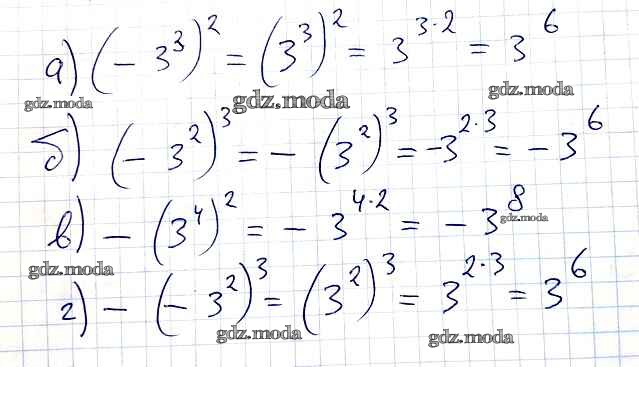 а) (-3³)² = (3³)² = 3³·² = 3⁶
gdz.moda gdz.moda gdz.moda
б) (-3²)³ = -(3²)³ = -3²·³ = -3⁶
в) -(3⁴)² = -3⁴·² = -3⁸
gdz.moda gdz.moda
г) -(-3²)³ = (3²)³ = 3²·³ = 3⁶
gdz.moda gdz.moda